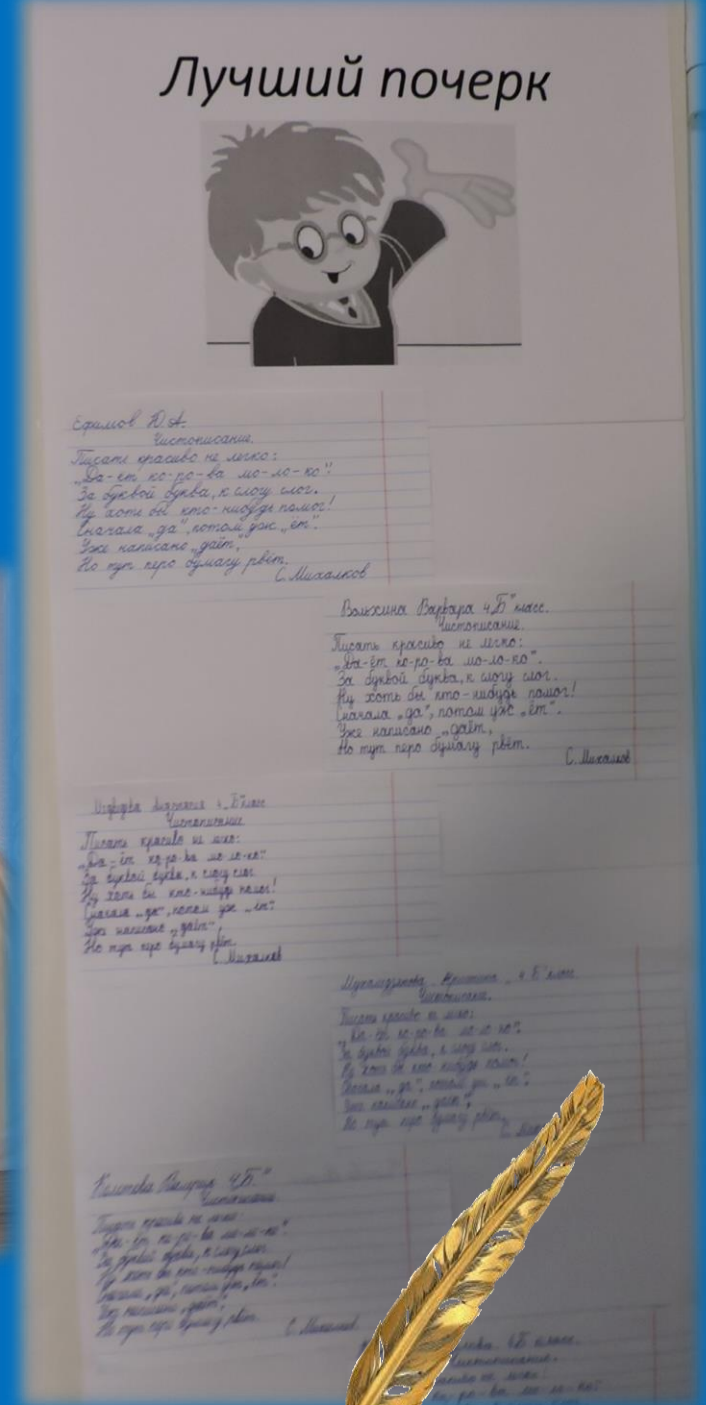 Лучший почерк
Ефимов Ю.А.
Чистописание.
Писать красиво не легко:
„Да-ёт ко-ро-ва мо-ло-ко".
За буквой буква, к слогу слог.
Ну хоть бы кто-нибудь помог!
Сначала „да", потом уж „ёт".
Уже написано „даёт",
Но тут перо бумагу рвёт.
С. Михалков
Варвара 4 „Б" класс.
Чистописание.
Писать красиво не легко:
„Да-ёт ко-ро-ва мо-ло-ко".
За буквой буква, к слогу слог.
Ну хоть бы кто-нибудь помог!
Сначала „да", потом уж „ёт".
Уже написано „даёт,
Но тут перо бумагу рвёт.
С. Михалков
4 „Б" класс
Чистописание
Писать красиво не легко:
„Да-ёт ко-ро-ва мо-ло-ко"
За буквой буква, к слогу слог
Ну хоть бы кто-нибудь помог!
Сначала „да", потом уж „ёт".
Уже написано „даёт",
Но тут перо бумагу рвёт.
С. Михалков
Кристина 4 „Б" класс
Чистописание.
Писать красиво не легко:
„Да-ёт ко-ро-ва мо-ло-ко".
За буквой буква, к слогу слог.
Ну хоть бы кто-нибудь помог!
Сначала „да", потом уж „ёт".
Уже написано „даёт",
Но тут перо бумагу рвёт.
Валерия 4 „Б"
Чистописание
Писать красиво не легко:
„Да-ёт ко-ро-ва мо-ло-ко".
За буквой буква, к слогу слог
Ну хоть бы кто-нибудь помог!
Сначала „да", потом уж „ёт".
Уже написано „даёт",
Но тут перо бумагу рвёт.
С. Михалков
4Б класс.
Чистописание.
не легко:
ко-ро-ва мо-ло-ко"